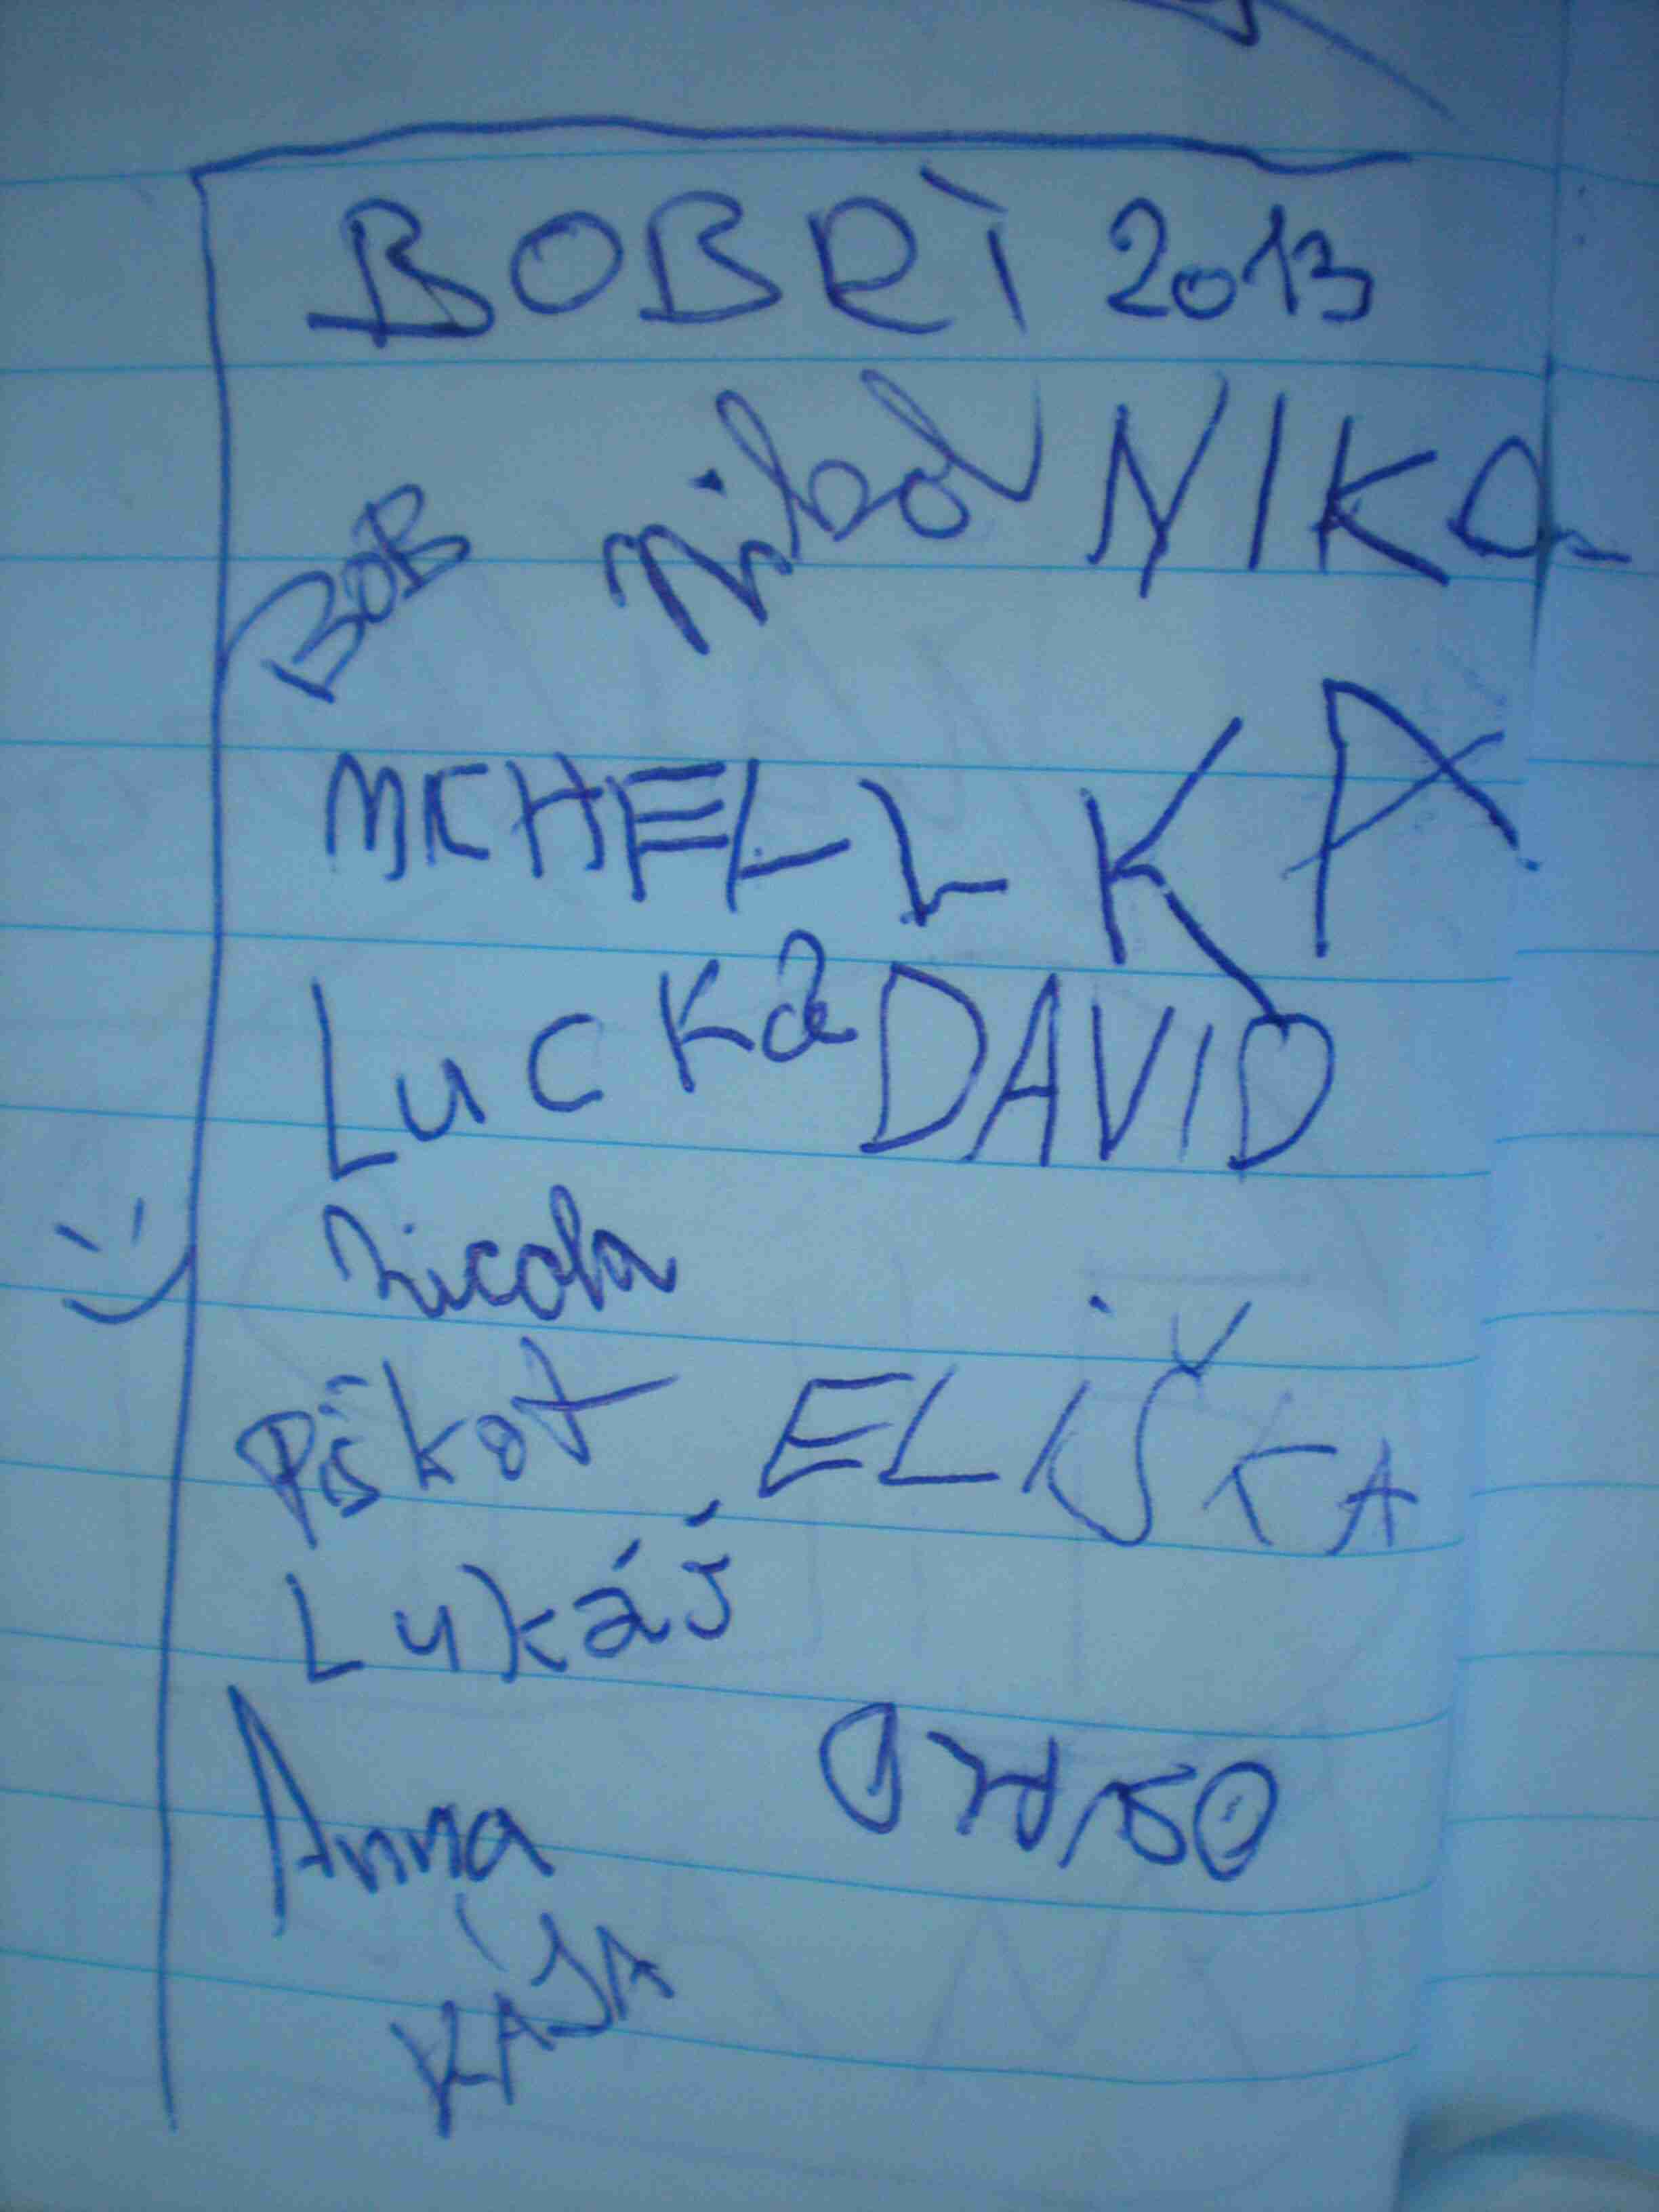 BOBŘI 2013
BOB nikol NIKA
MICHELLKA
LUCKA DAVID
Nicola
Piškot ELIŠKA
Lukáš
Anna
KÁJA